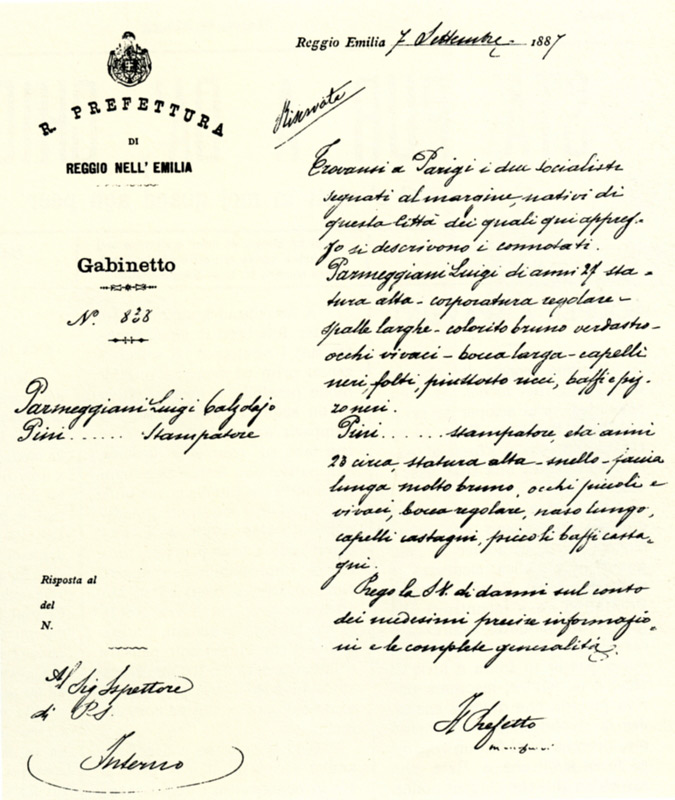 R. PREFETTURA
DI
REGGIO NELL' EMILIA
Gabinetto
N. 828
Parmeggiani Luigi Calzolajo
Pini ...... Stampatore
Risposta al
del
N.
Al Sig Ispettore
di P.S.
Interno
Reggio Emilia 7 Settembre 1887
Riservata
Trovansi a Parigi i due socialisti
segnati al margine, nativi di
questa Città dei quali qui appres-
so si descrivono i connotati.
Parmeggiani Luigi di anni 27 sta-
tura alta - corporatura regolare -
spalle larghe - colorito bruno verdastro -
occhi vivaci - bocca larga - capelli
neri, folti, piuttosto ricci, baffi e piz-
zo neri.
Pini ...... stampatore, età anni
23 circa, statura alta - snello - faccia
lunga molto bruno, occhi piccoli e
vivaci, bocca regolare, naso lungo,
capelli castagni, piccoli baffi casta-
gni.
Prego la S.V. di darmi sul conto
dei medesimi precise informazio-
ni e le complete generalità.
Il Prefetto